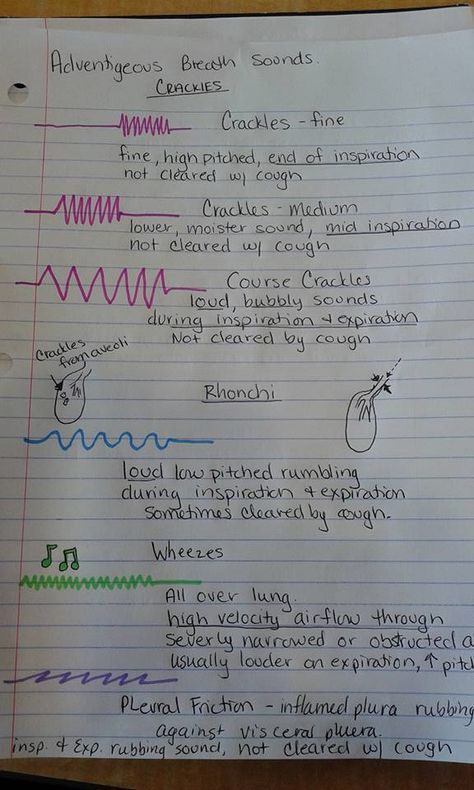 Adventigeous Breath Sounds.
CRACKLES
Crackles - fine
fine, high pitched, end of inspiration
not cleared w/ cough
Crackles - Medium
lower, moister sound, mid inspiration
not cleared w/ cough
Course Crackles
loud, bubbly sounds
during inspiration & expiration
Not cleared by cough
Crackles
from aveoli
Rhonchi
loud low pitched rumbling
during inspiration & expiration
sometimes cleared by cough.
Wheezes
All over lung.
high velocity airflow through
severly narrowed or obstructed a
usually louder on expiration, ↑ pitc
PLevral Friction - inflamed plura rubbing
against visceral pluera.
insp. & Exp. rubbing sound, not cleared w/ cough